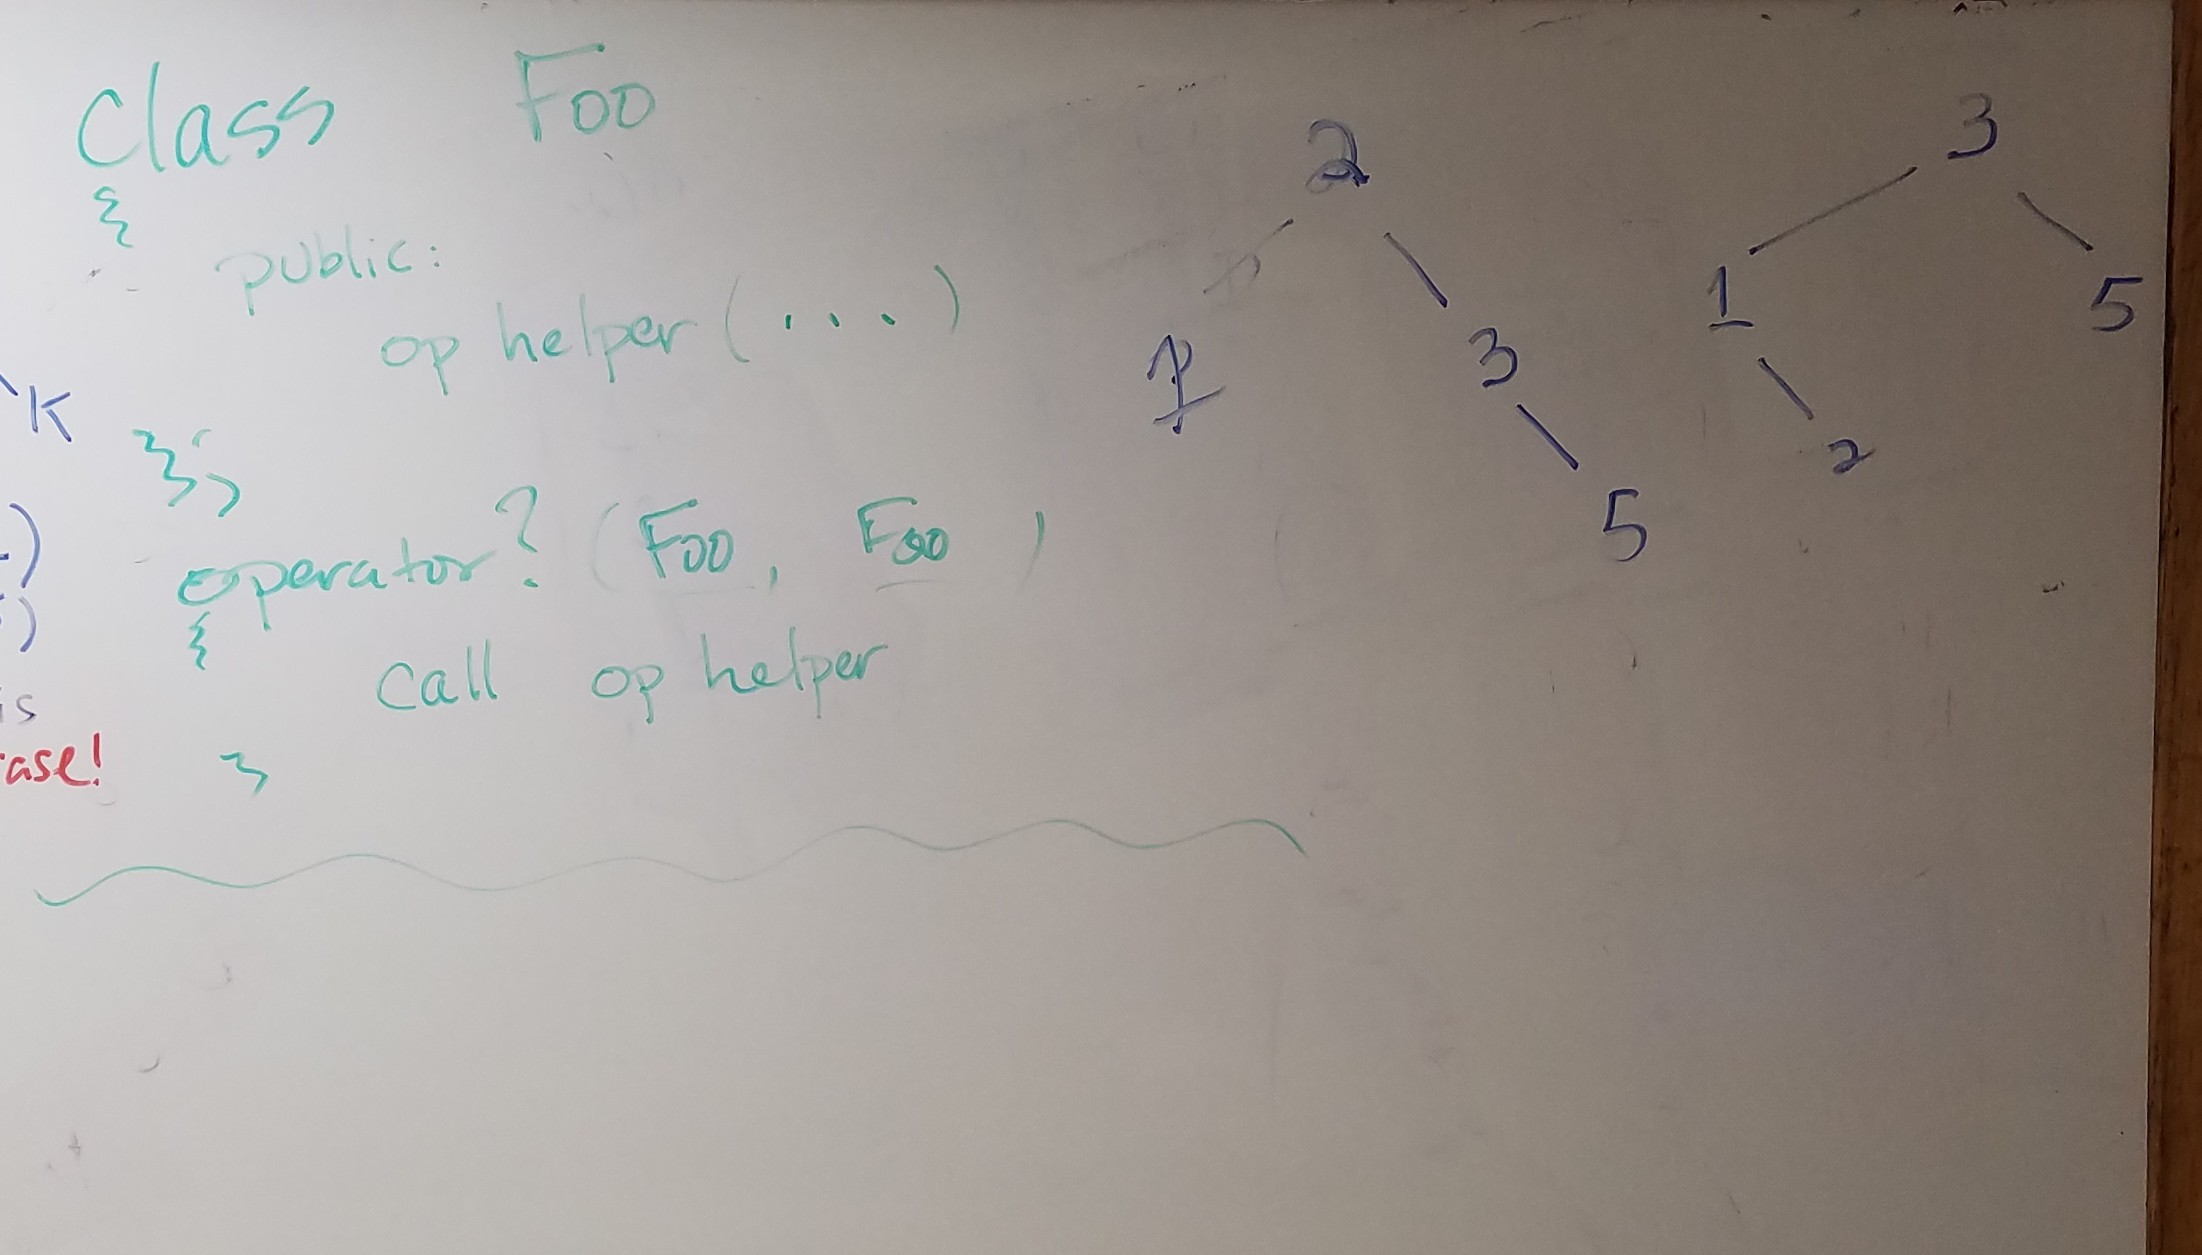 class Foo
{
public:
op helper (...)
};
operator? (Foo, Foo)
{
call op helper
}
K
)
)
is
ase!
2
1
3
5
3
1
5
2